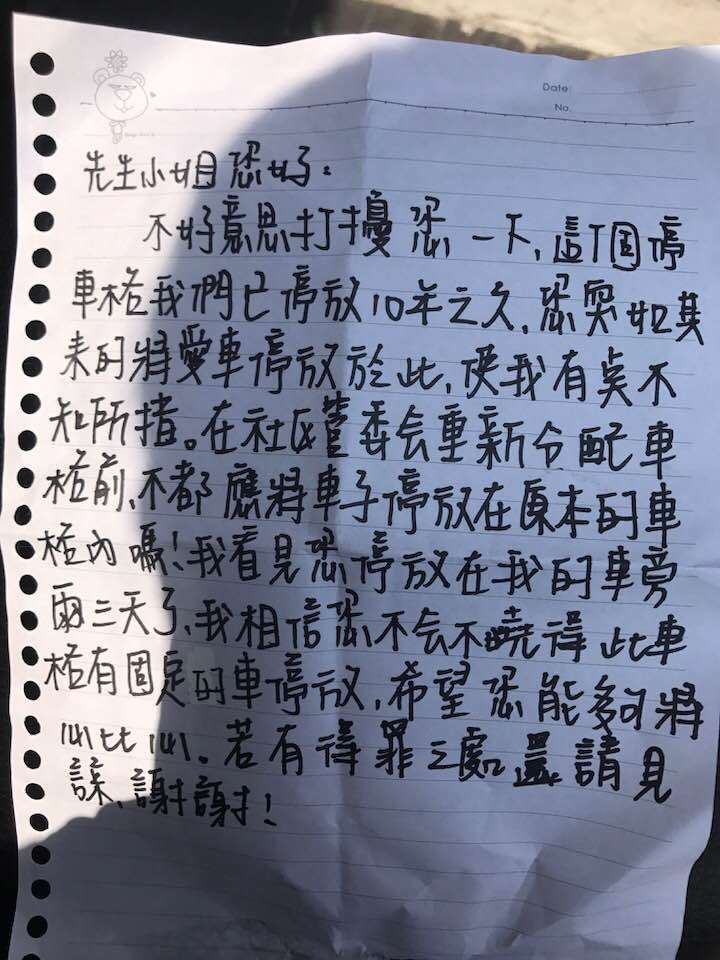 Date:
No.
先生小姐恐好:
不好意思打擾恐一下,這個停
車格我們已停放10年之久,恐突如其
來的將愛車停放於此,使我有奌不
知所措。在社區管委会重新分配車
格前,不都應將車子停放在原本的車
格內嗎!我看見恐停放在我的車旁
兩三天了,我相信恐不会不曉得此車
格有固定的車停放,希望恐能夠將
心比心。若有得罪之處還請見
諒、謝謝!